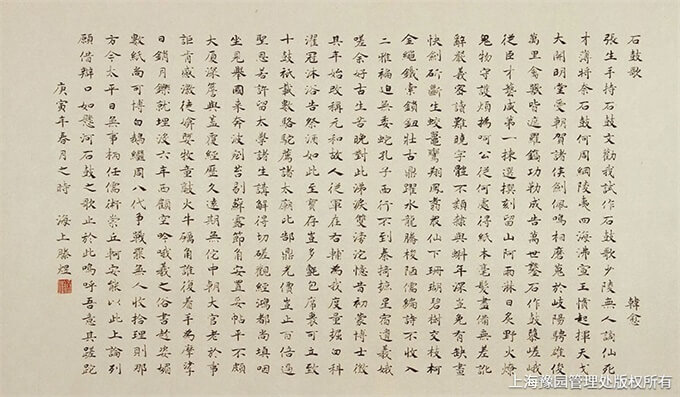 石鼓歌 韓愈
張生手持石鼓文勸我試作石鼓歌少陵無人謫仙死
才薄將奈石鼓何周綱陵夷四海沸宣王憤起揮天戈
大開明堂受朝賀諸侯劍佩鳴相磨蒐於岐陽騁雄俊
萬里禽獸皆遮羅鐫功勒成告萬世鑿石作鼓隳嵯峨
從臣才藝咸第一揀選撰刻留山阿雨淋日炙野火燎
鬼物守護煩撝呵公從何處得紙本毫髮盡備無差訛
辭嚴義密讀難曉字體不類隸與蝌年深豈免有缺畫
快劍斫斷生蛟鼉鸞翔鳳翥衆仙下珊瑚碧樹交枝柯
金繩鐵索鎖鈕壯古鼎躍水龍騰梭陋儒編詩不收入
二雅褊迫無委蛇孔子西行不到秦掎摭星宿遺羲娥
嗟余好古生苦晚對此涕淚雙滂沱憶昔初蒙博士徵
其年始改稱元和故人從軍在右輔為我度量掘臼科
濯冠沐浴告祭酒如此至寶存豈多氈包席裹可立致
十鼓祇載數駱駝薦諸太廟比郜鼎光價豈止百倍過
聖恩若許留太學諸生講解得切磋觀經鴻都尚填咽
坐見舉國來奔波剜苔剔蘚露節角安置妥帖平不頗
大廈深簷與蓋覆經歷久遠期無佗中朝大官老於事
詎肯感激徒媕婀牧童敲火牛礪角誰復著手為摩挲
日銷月鑠就埋沒六年西顧空吟哦羲之俗書趁姿媚
數紙尚可博白鵝繼周八代爭戰罷無人收拾理則那
方今太平日無事柄任儒術崇丘軻安能以此上論列
願借辯口如懸河石鼓之歌止於此嗚呼吾意其蹉跎
庚寅年春月之時 海上滕煜
上海豫园管理处版权所有